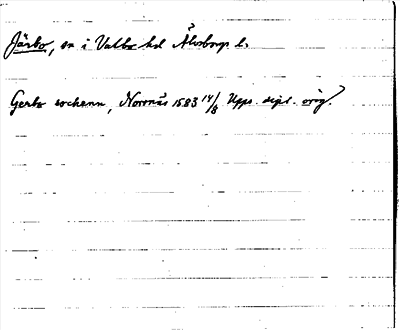 Järbo, sn i Valbo hd Älvsborgs l.
Gerbo sochnn, Nornäs 1583 14/8 Upps. dipl. orig.